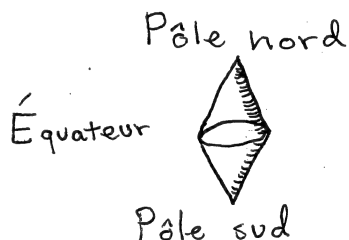 Pôle nord
Équateur
Pôle sud